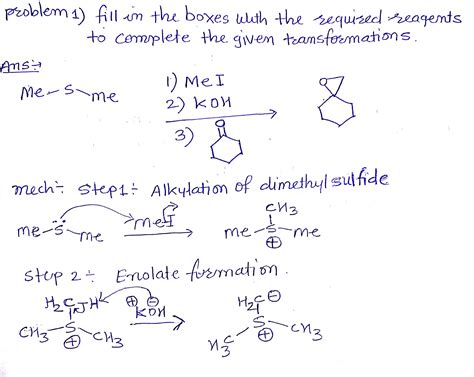 problem 1) fill in the boxes with the required reagents
to complete the given transformations.
Ans:→
Me - S - me
1) Me I
2) KOH
3)
O
O
mech:- Step 1:- Alkylation of dimethyl sulfide
me - S̈ - me
meI
CH3
me - S - me
⊕
Step 2 :- Enolate formation.
H2C - H
CH3 - S - CH3
⊕
⊕ ⊖
KOH
H2C ⊖
H3C - S - CH3
⊕